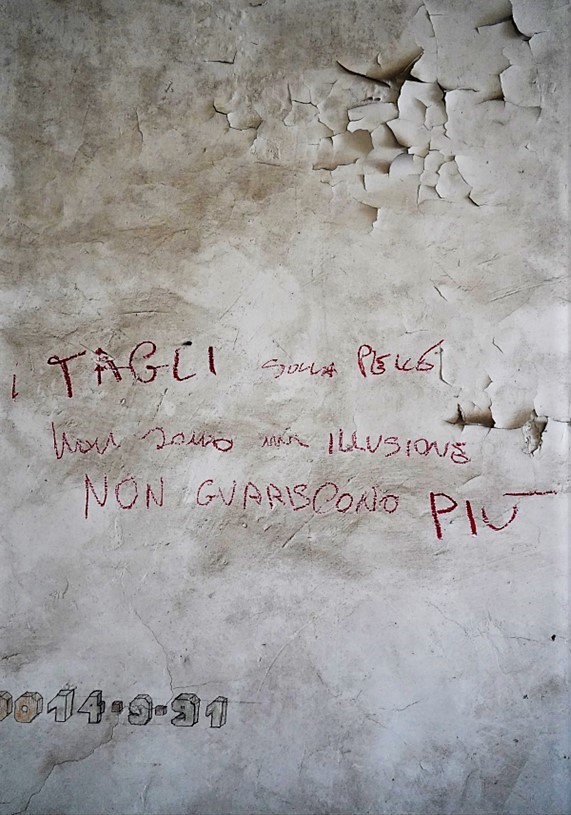 I TAGLI SULLA PELLE
NON SONO un ILLUSIONE
NON GUARISCONO PIÙ
14-9-91